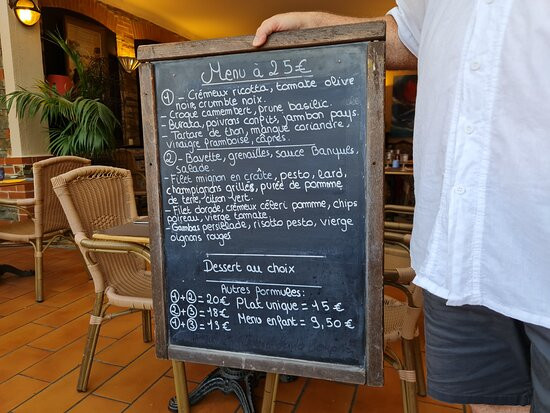 Menu à 25€
① - Crémeux ricotta, tomate olive
noire, crumble noix.
- Croque camembert, prune basilic.
- Burata, poivrons confits, jambon pays.
- Tartare de thon, mangue coriandre,
vinaigre framboise, câpres.
② - Bavette, grenailles, sauce Banyuls,
salade
- Filet mignon en croûte, pesto, lard,
champignons grillés, purée de pomme
de terre-citron vert.
- Filet dorade, crémeux céleri pomme, chips
poireau, vierge tomate
- Gambas persillade, risotto pesto, vierge
oignons rouges
Dessert au choix
Autres formules:
①+②=20€ Plat unique=15€
②+③=18€ Menu enfant=9,50€
①+③=13€